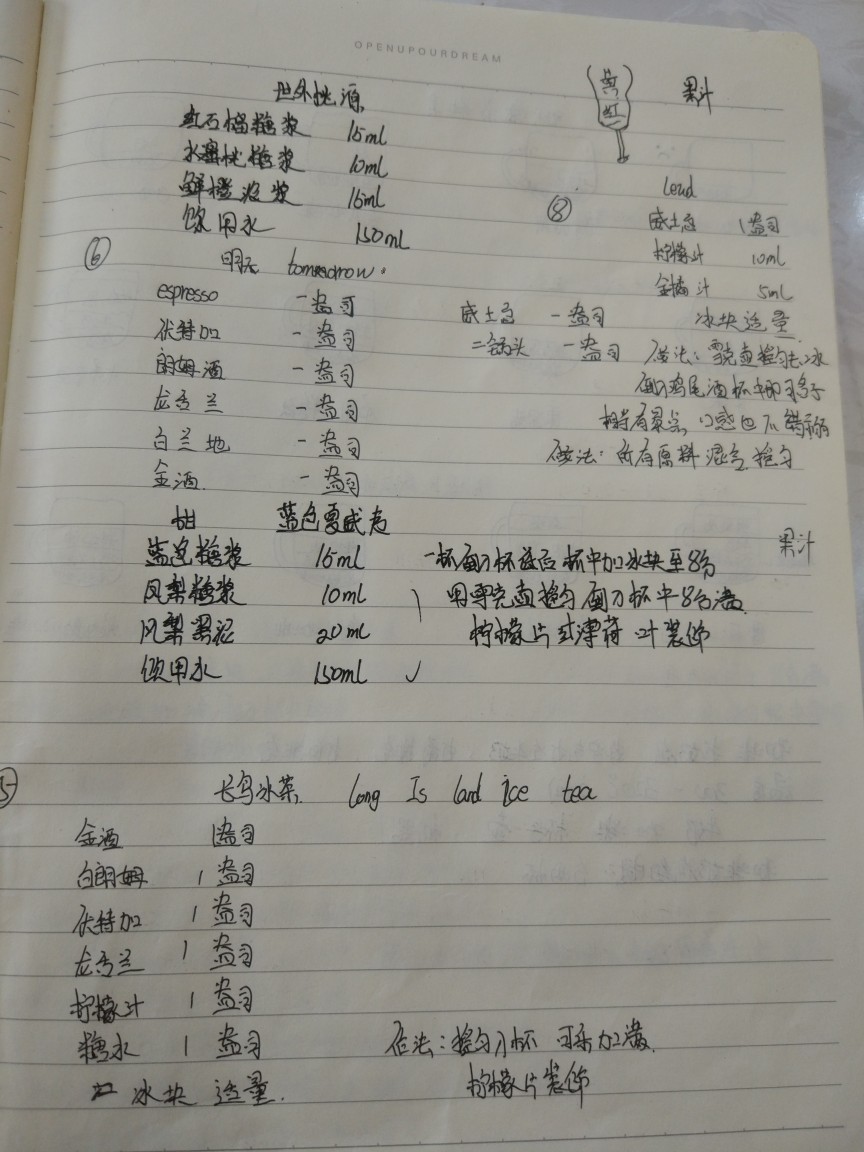 OPENUPOURDREAM
世外桃源
红石榴糖浆 15ml
水蜜桃糖浆 10ml
鲜橙浓浆 15ml
饮用水 150ml
果汁
⑧ Lead
威士忌 1盎司
柠檬汁 10ml
金橘汁 5ml
冰块适量
做法：雪克壶摇匀去冰
倒入鸡尾酒杯中即可
口感也不错
⑥ 明天 tommorow.
espresso 一盎司
伏特加 一盎司
朗姆酒 一盎司
龙舌兰 一盎司
白兰地 一盎司
金酒 一盎司
威士忌 一盎司
二锅头 一盎司
做法：所有原料混合摇匀
甜 蓝色夏威夷 果汁
蓝色糖浆 15ml
凤梨糖浆 10ml
凤梨果泥 20ml
饮用水 150ml
杯中加冰块至8分
用雪克壶摇匀倒入杯中8分满
柠檬片或薄荷叶装饰
5 长岛冰茶 Long Is land ice tea
金酒 1盎司
白朗姆 1盎司
伏特加 1盎司
龙舌兰 1盎司
柠檬汁 1盎司
糖水 1盎司
冰块 适量.
做法：摇匀入杯 可乐加满.
柠檬片装饰